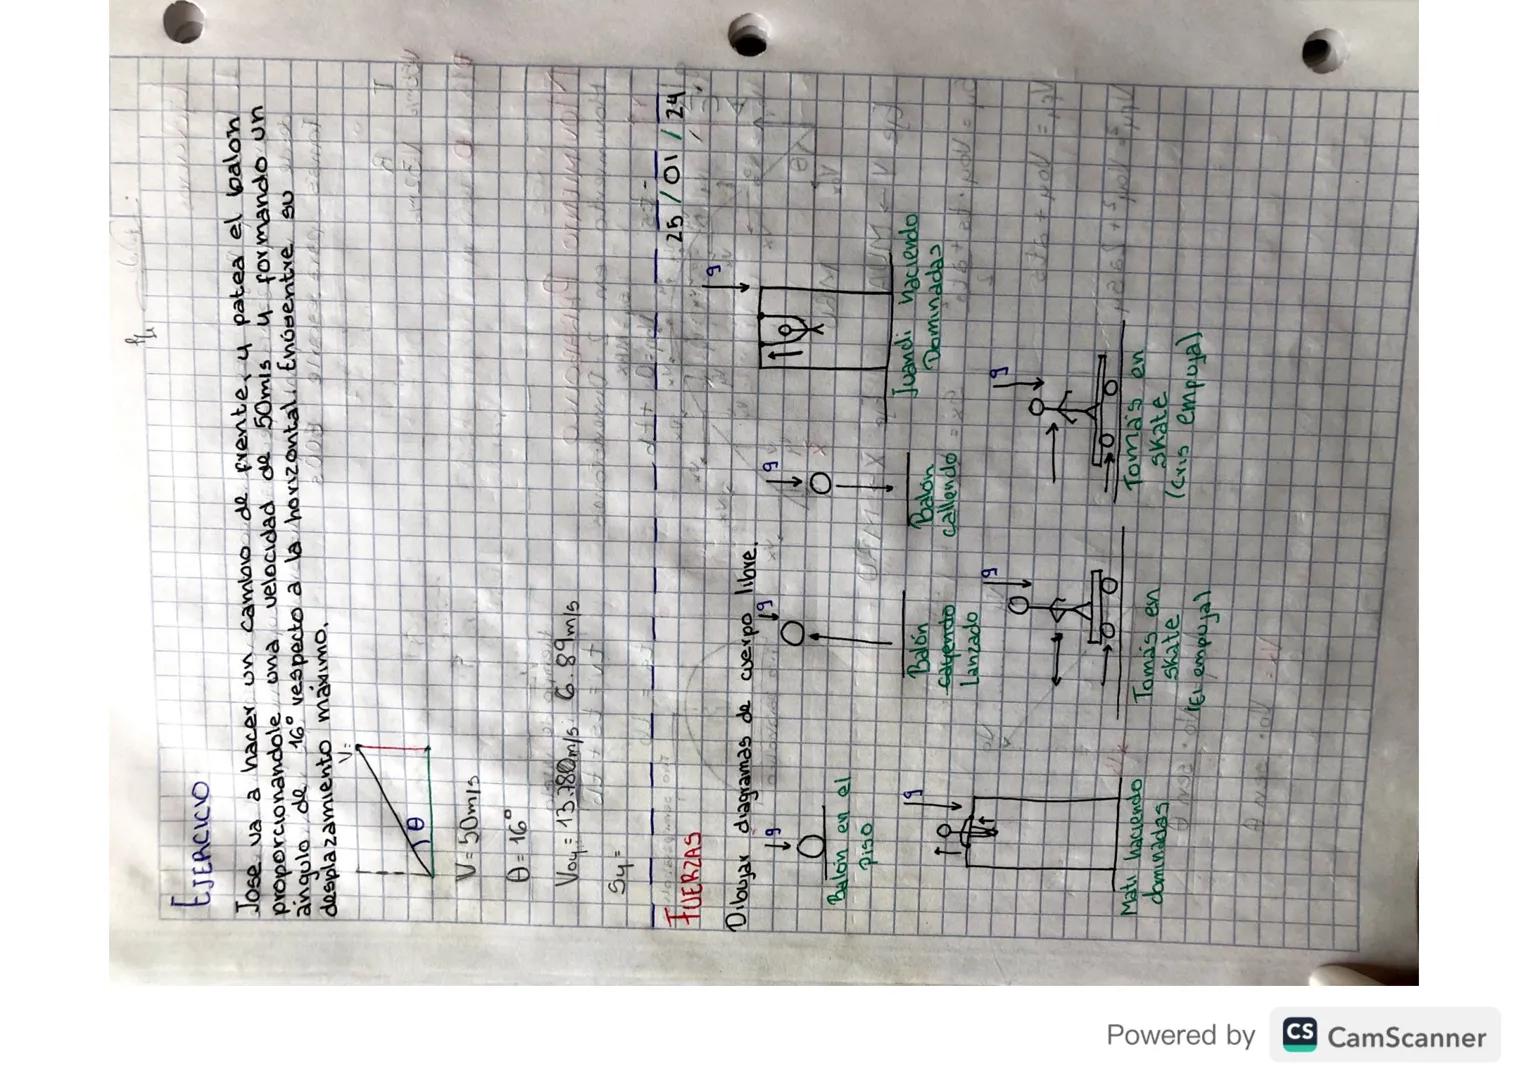 EJERCICIO
Jose va a hacer un cambio de frente, y patea el balon
proporcionandole una velocidad de 50m/s y formando un
ángulo de 16° respecto a la horizontal. Encuentre su
desplazamiento máximo.
V=
θ
V=50m/s
θ=16°
Voy=13.780m/s 6.89m/s
Sy=
25/01/24
FUERZAS
Dibujar diagramas de cuerpo libre.
g
g
g
g
Balón en el
piso
Balón
cayendo
Lanzado
Balón
callendo
Juandi haciendo
Dominadas
g
g
g
Mati haciendo
dominadas
Tomás en
skate
(El empuja)
Tomás en
skate
(Cris empuja)
Powered by CS CamScanner